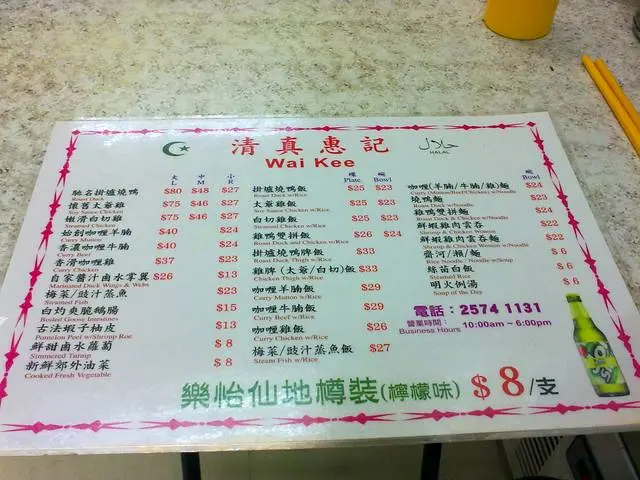 清真惠記
حلال
HALAL
Wai Kee
大 中 小
L M S
馳名掛爐燒鴨 $80 $48 $27
Roast Duck
懷舊太爺雞 $75 $46 $27
Soy Sauce Chicken
嫩滑白切雞 $75 $46 $27
Steamed Chicken
始創咖喱羊腩 $40 $24
Curry Mutton
香濃咖喱牛腩 $40 $24
Curry Beef
香滑咖喱雞 $37 $23
Curry Chicken
自家醬汁鹵水掌翼 $26 $13
Marinated Duck Wings & Webs
梅菜/豉汁蒸魚 $23
Steamed Fish
白灼爽脆鵝腸 $15
Boiled Goose Intestines
古法蝦子柚皮 $13
Pomelon Peel w/Shrimp Roe
鮮甜鹵水蘿蔔 $8
Simmered Turnip
新鮮郊外油菜 $8
Cooked Fresh Vegetable
碟 碗
Plate Bowl
掛爐燒鴨飯 $25 $23
Roast Duck w/Rice
太爺雞飯 $25 $23
Soy Sauce Chicken w/Rice
白切雞飯 $25 $23
Steamed Chicken w/Rice
雞鴨雙拼飯 $26 $24
Roast Duck and Chicken w/Rice
掛爐燒鴨髀飯 $33
Roast Duck Thigh w/Rice
雞髀(太爺/白切)飯 $33
Chicken Thigh w/Rice
咖喱羊腩飯 $29
Curry Mutton w/Rice
咖喱牛腩飯 $29
Curry Beef w/Rice
咖喱雞飯 $26
Curry Chicken w/Rice
梅菜/豉汁蒸魚飯 $27
Steam Fish w/Rice
碗
Bowl
咖喱(羊腩/牛腩/雞)麵 $24
Curry (Mutton/Beef/Chicken) w/Noodle
燒鴨麵 $23
Roast Duck w/Noodle
雞鴨雙拼麵 $24
Roast Duck & Chicken w/Noodle
鮮蝦雞肉雲吞 $22
Shrimp & Chicken Wonton
鮮蝦雞肉雲吞麵 $22
Shrimp & Chicken Wonton w/Noodle
齋河/瀨/麵 $6
Rice Noodle / Noodle w/Soup
絲苗白飯 $6
Steamed Rice
明火例湯 $6
Soup of the Day
電話：2574 1131
營業時間：
Business Hours 10:00am~6:00pm
樂怡仙地樽裝(檸檬味) $8/支